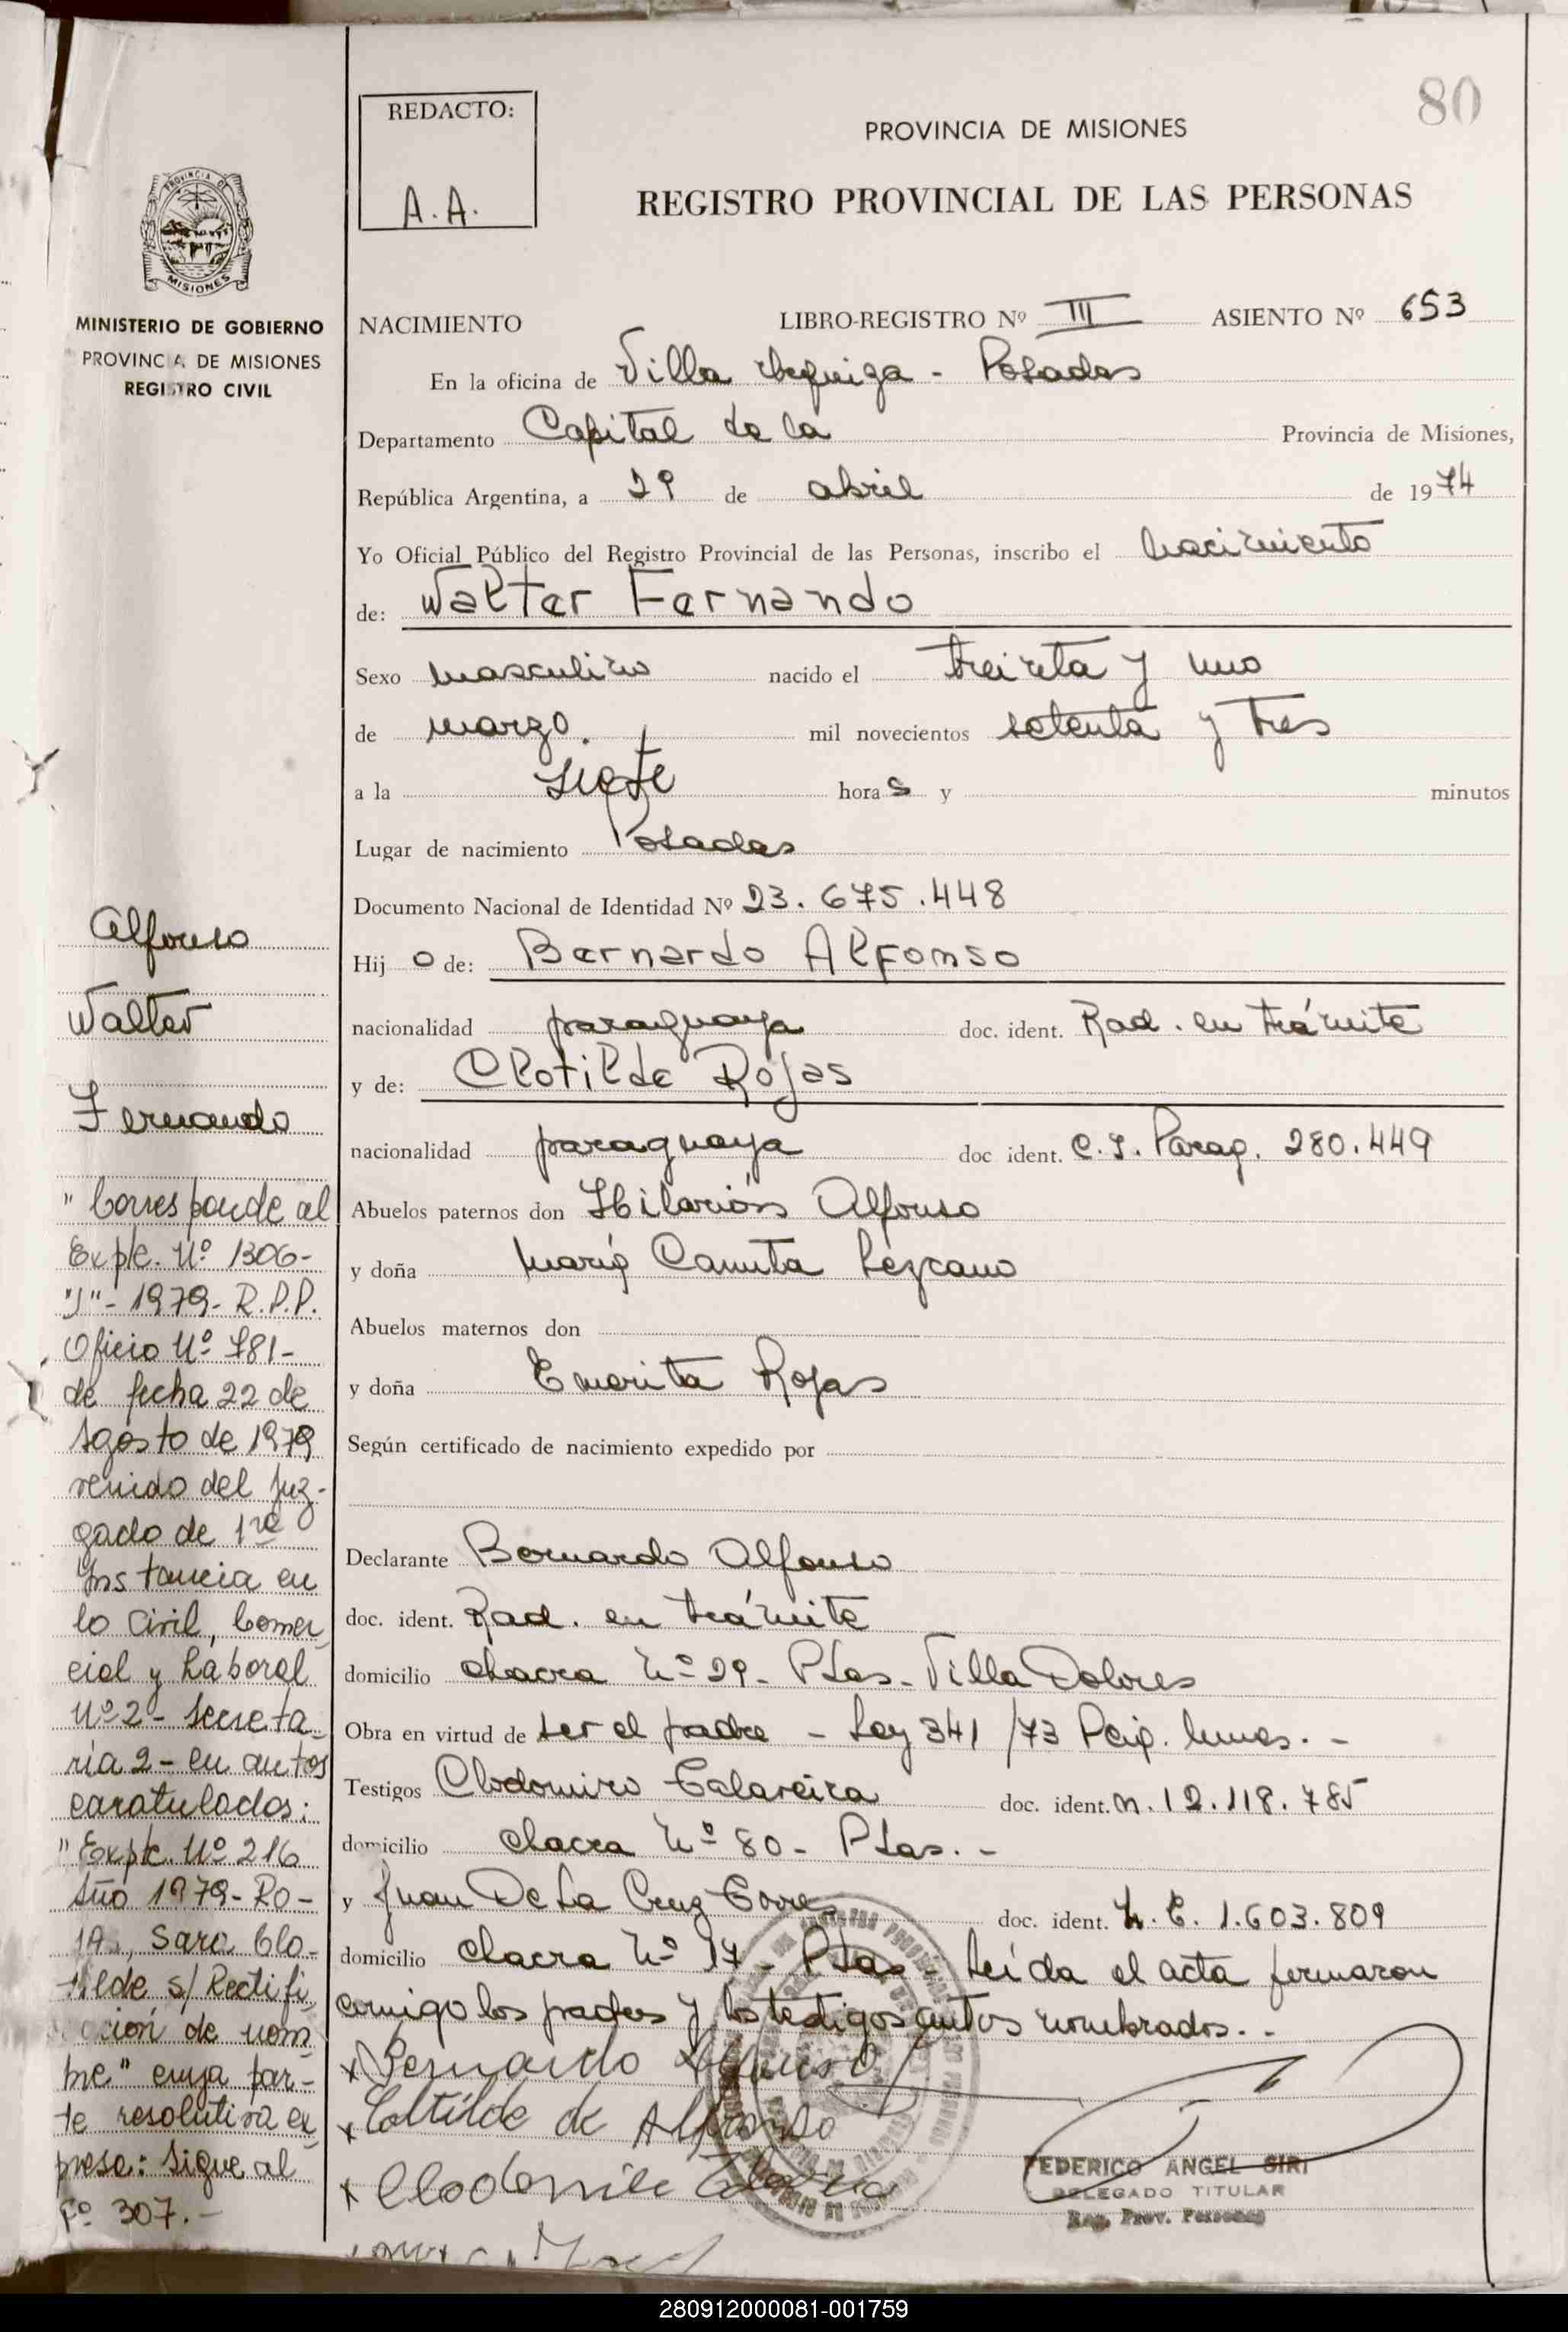 80
REDACTO:
A.A.
PROVINCIA DE MISIONES
REGISTRO PROVINCIAL DE LAS PERSONAS
PROVINCIA DE
MISIONES
MINISTERIO DE GOBIERNO
PROVINCIA DE MISIONES
REGISTRO CIVIL
NACIMIENTO LIBRO-REGISTRO Nº III ASIENTO Nº 653
En la oficina de Villa - Posadas
Departamento Capital de la Provincia de Misiones,
República Argentina, a 29 de abril de 1974
Yo Oficial Público del Registro Provincial de las Personas, inscribo el nacimiento
de: Walter Fernando
Sexo masculino nacido el treinta y uno
de marzo. mil novecientos setenta y tres
a la siete horas y minutos
Lugar de nacimiento Posadas
Documento Nacional de Identidad Nº 23.675.448
Hijo de: Bernardo Alfonso
nacionalidad paraguaya doc. ident. Rad. en trámite
y de: Clotilde Rojas
nacionalidad paraguaya doc ident. C.I. Parag. 280.449
Abuelos paternos don Hilarión Alfonso
y doña María Lezcano
Abuelos maternos don
y doña Emerita Rojas
Según certificado de nacimiento expedido por
Declarante Bernardo Alfonso
doc. ident. Rad. en trámite
domicilio chacra Nº 29 - Pdas. Villa Dolores
Obra en virtud de ser el padre - Ley 341/73
Testigos Clodomiro doc. ident. M. 12.118.785
domicilio chacra Nº 80 - Pdas. -
y Juan De La Cruz doc. ident. L.E. 1.603.809
domicilio chacra Nº 17 - Pdas - Leída el acta firmaron
conmigo los padres y los testigos antes nombrados. -
x Bernardo Alfonso
x Clotilde de Alfonso
x
FEDERICO ANGEL SIRI
DELEGADO TITULAR
Reg. Prov. Personas
Alfonso
Walter
Fernando
"Corresponde al
Expte. Nº 1306-
"J"- 1979- R.P.P.
Oficio Nº 781-
de fecha 22 de
Agosto de 1979
venido del Juz-
gado de 1ra
Instancia en
lo Civil, Comer
cial y Laboral
Nº 2 - Secreta-
ría 2 - en autos
caratulados:
"Expte. Nº 216
Año 1979 - RO-
JAS, Sara Clo-
tilde s/ Rectifi
cación de nom
bre" cuya par-
te resolutiva ex
presa: Sigue al
Fº 307. -
280912000081-001759